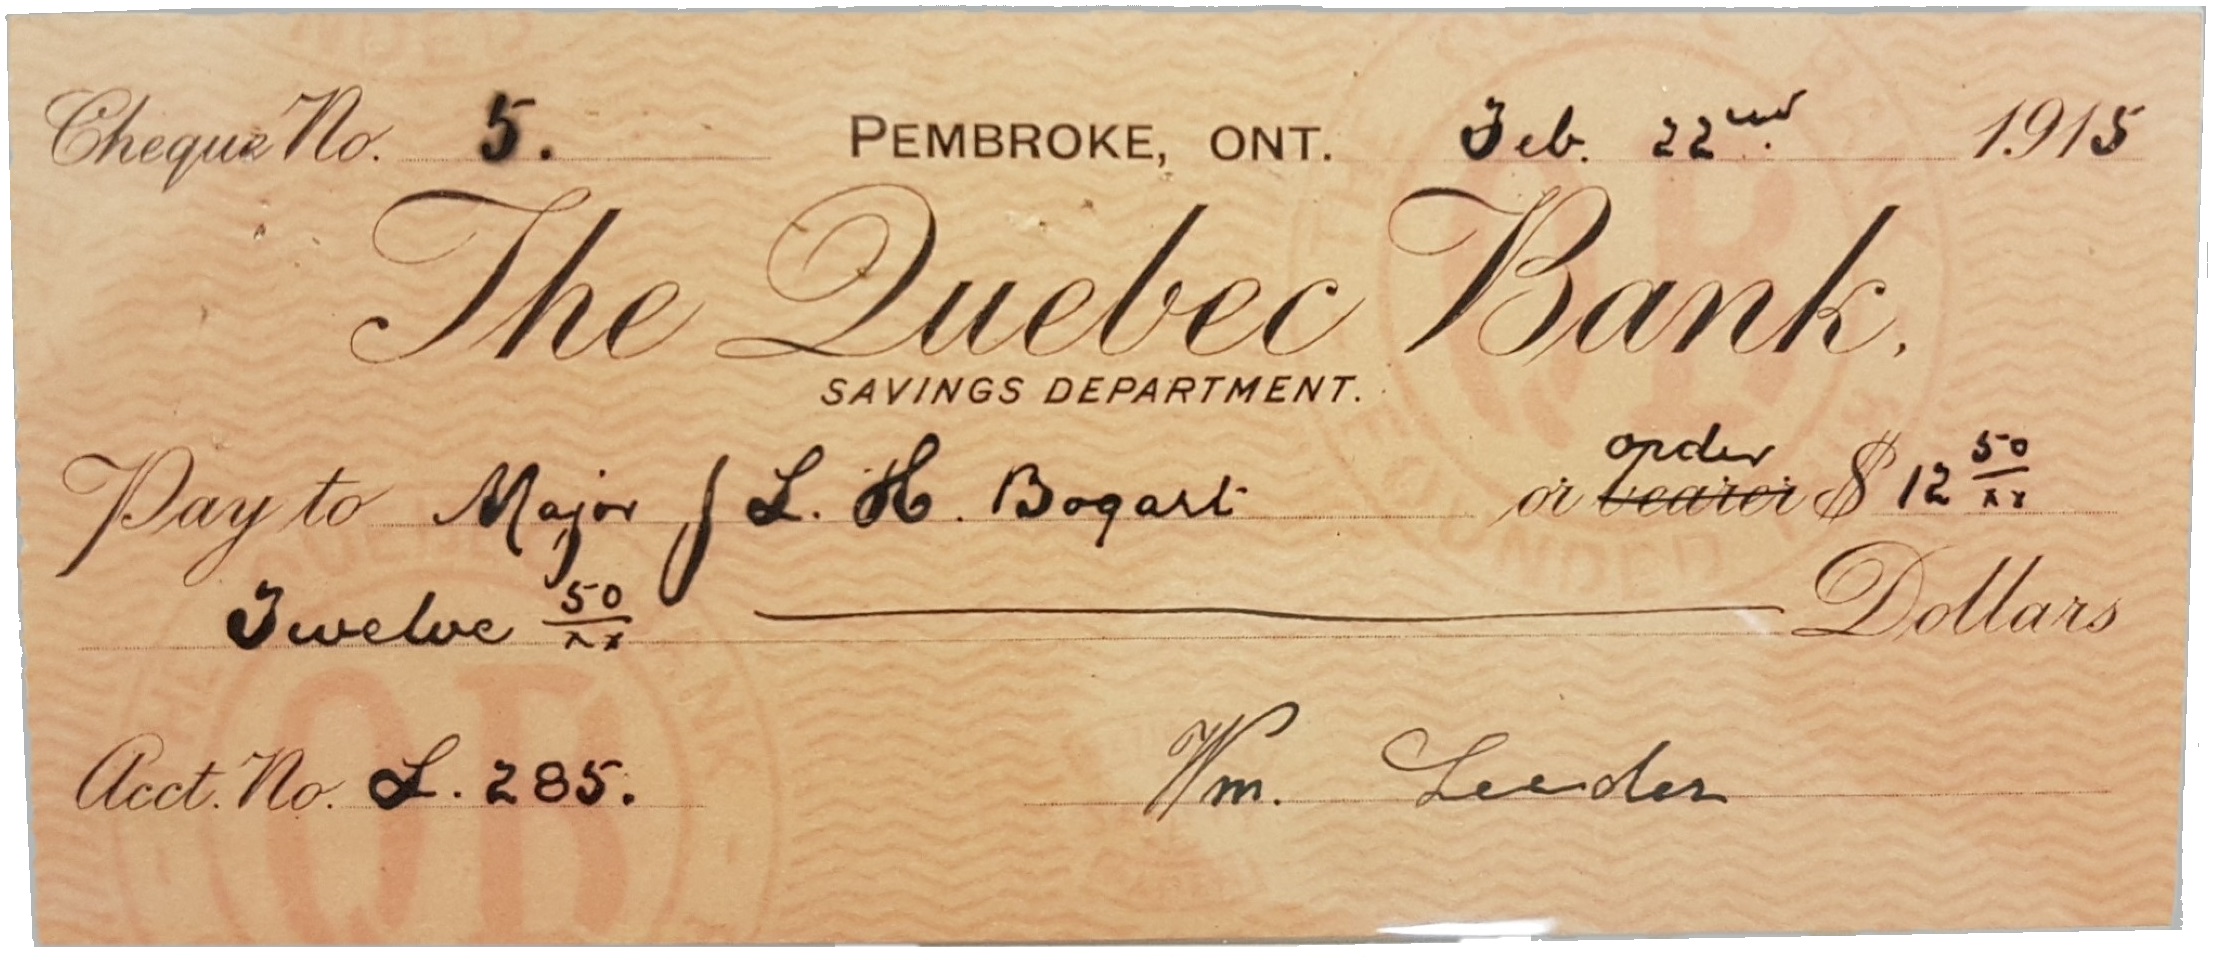 Cheque No. 5. PEMBROKE, ONT. Feb. 22nd. 1915
The Quebec Bank.
SAVINGS DEPARTMENT.
order
Pay to Major J L. H. Bogart or bearer $ 12 50/xx
Twelve 50/xx Dollars
Acct. No. L. 285. Wm. Leeder